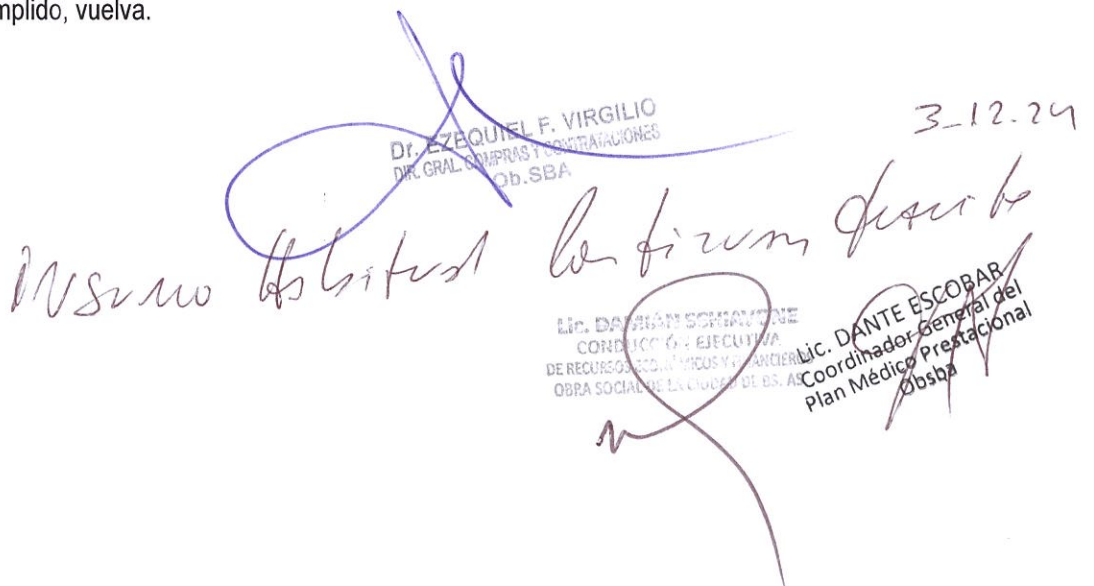 mplido, vuelva.
Dr. EZEQUIEL F. VIRGILIO
DIR. GRAL. COMPRAS Y CONTRATACIONES
Ob.SBA
3-12-24
Insumo Habitual
Lic. DAMIÁN SCHIAVONE
CONDUCCIÓN EJECUTIVA
DE RECURSOS ECONÓMICOS Y FINANCIEROS
OBRA SOCIAL DE LA CIUDAD DE BS. AS
Lic. DANTE ESCOBAR
Coordinador General del
Plan Médico Prestacional
Obsba